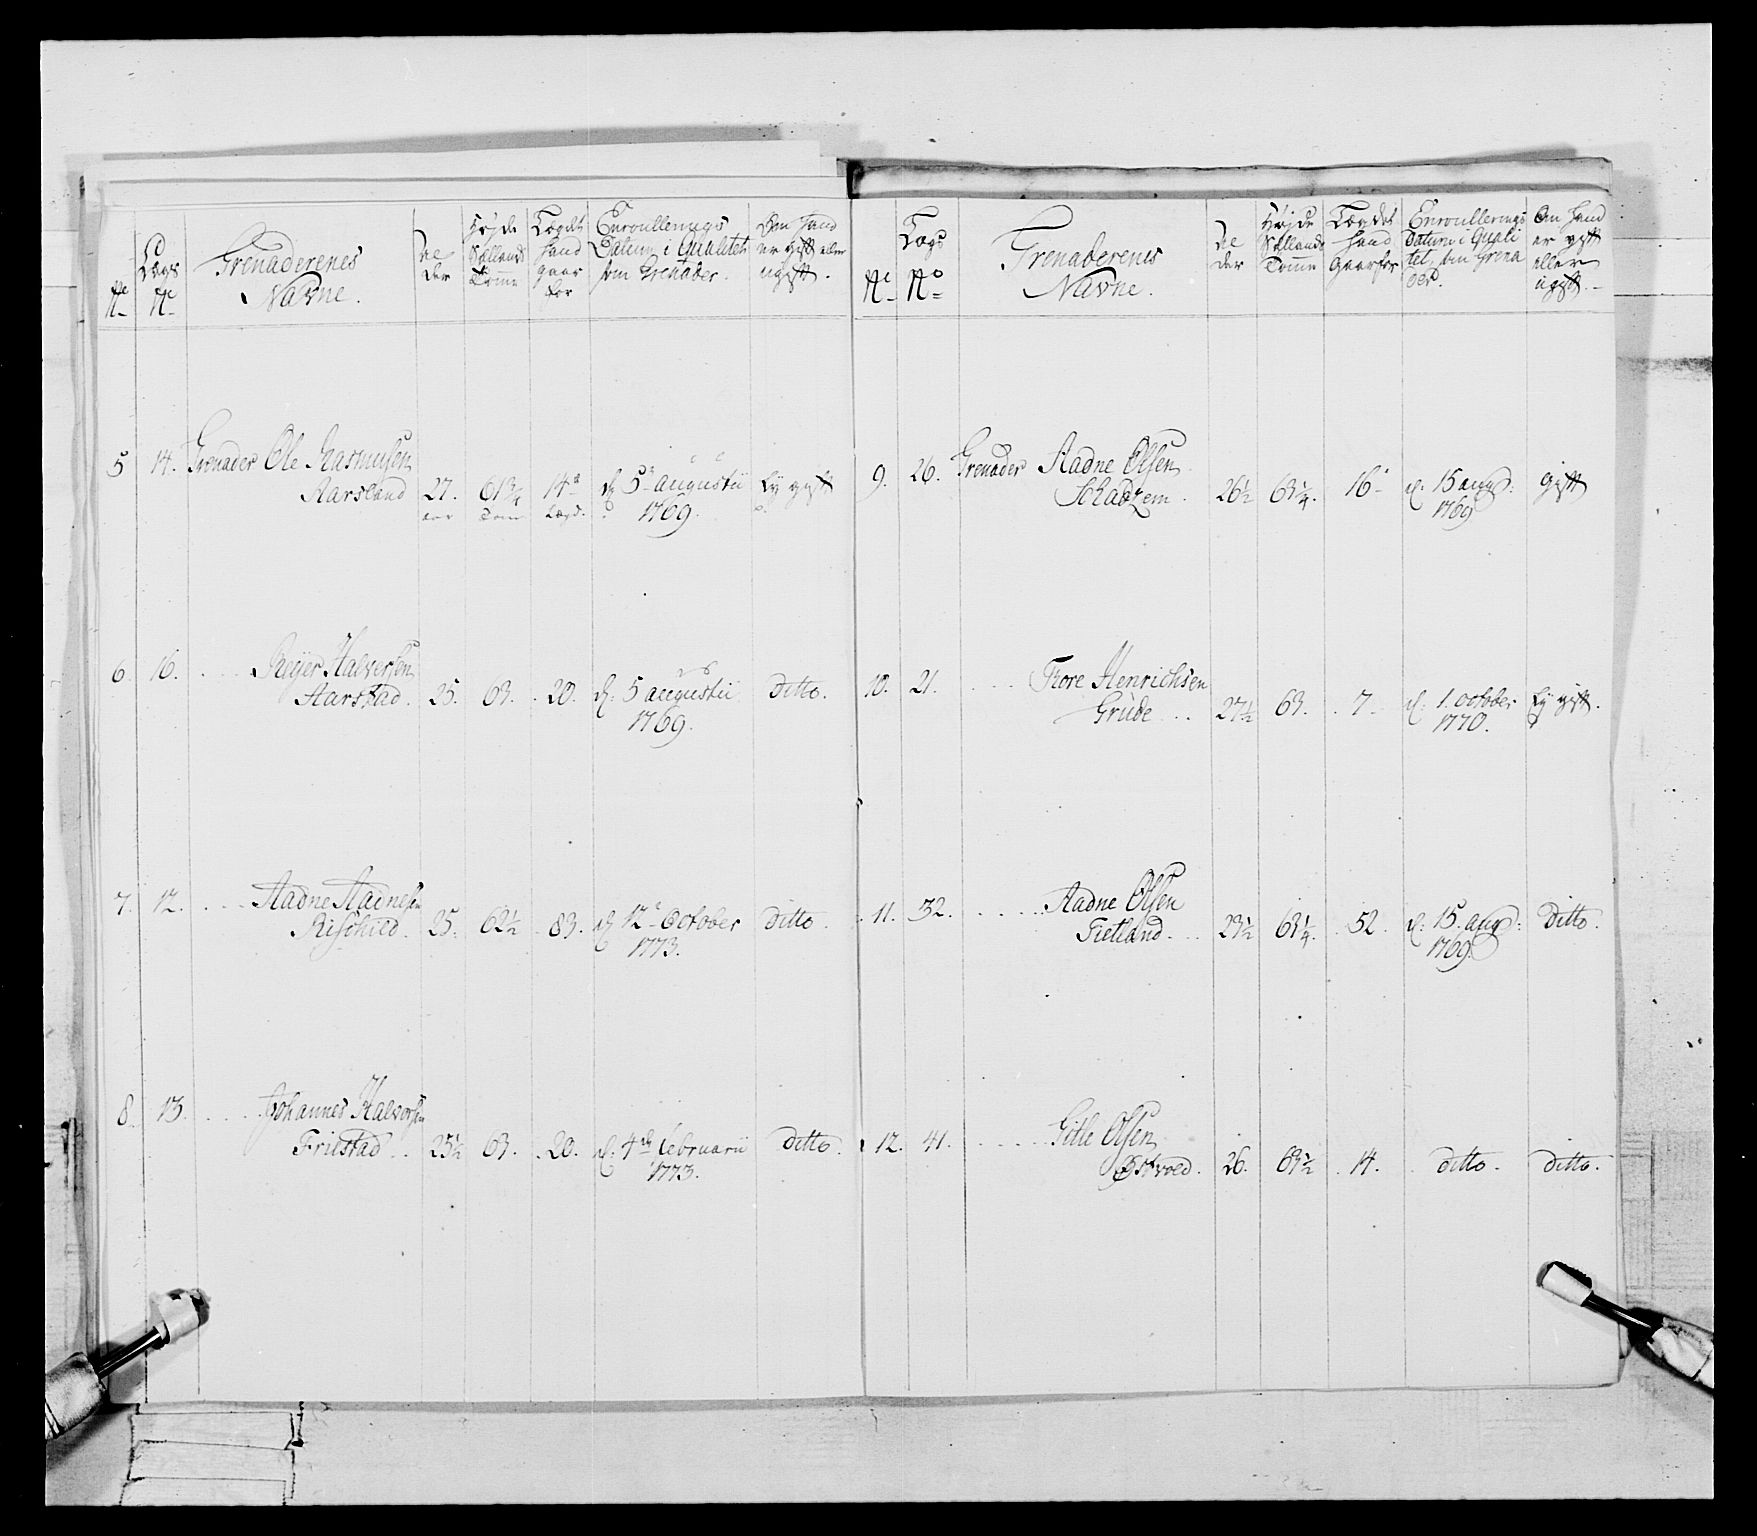 No
Lægs
No
Grenaderenes
Navne.
Al
der
Højde
Sællands
Tomme
Lægdet
hand
gaar
for
Enroullerings
Datum i Qualitet
som Grenader.
Om hand
er gift eller
ugift.
5
14.
Grenader Ole Rasmusen
Aarsland
27.
aar
61 3/4
Tom
14de
Lægd.
d: 5te augustii
1769.
Ey gift
6.
16.
Reyer Halversen
Aarstad.
25.
63.
20.
d: 5 augustii
1769.
ditto.
7.
12.
Aadne Aadnesen
Rischied.
25.
62 1/2
83.
d: 12te October
1773.
ditto.
8.
13.
Johannes Halvorsen
Friestad.
25 1/2
63.
20.
d: 4de februarii
1773.
ditto.
No
Lægs
No
Grenaderenes
Navne.
Al
der
Højde
Sællands
Tomme
Lægdet
hand
gaar for
Enroullerings
Datum i Quali
tet, som Grena
der.
Om hand
er gift
eller
ugift.
9.
26.
Grenader Aadne Olsen
26 1/2
63 1/4.
16
d: 15 aug:
1769
gift
10.
21.
Tore Henrichsen
Grude
27 1/2
63.
7
d: 1. october
1770.
Ey gift.
11.
32.
Aadne Olsen
Tietland.
23 1/2
63 1/4.
52.
d: 15. aug:
1769.
ditto.
12.
41.
Gitle Olsen
26.
63 1/2
14.
ditto.
ditto.